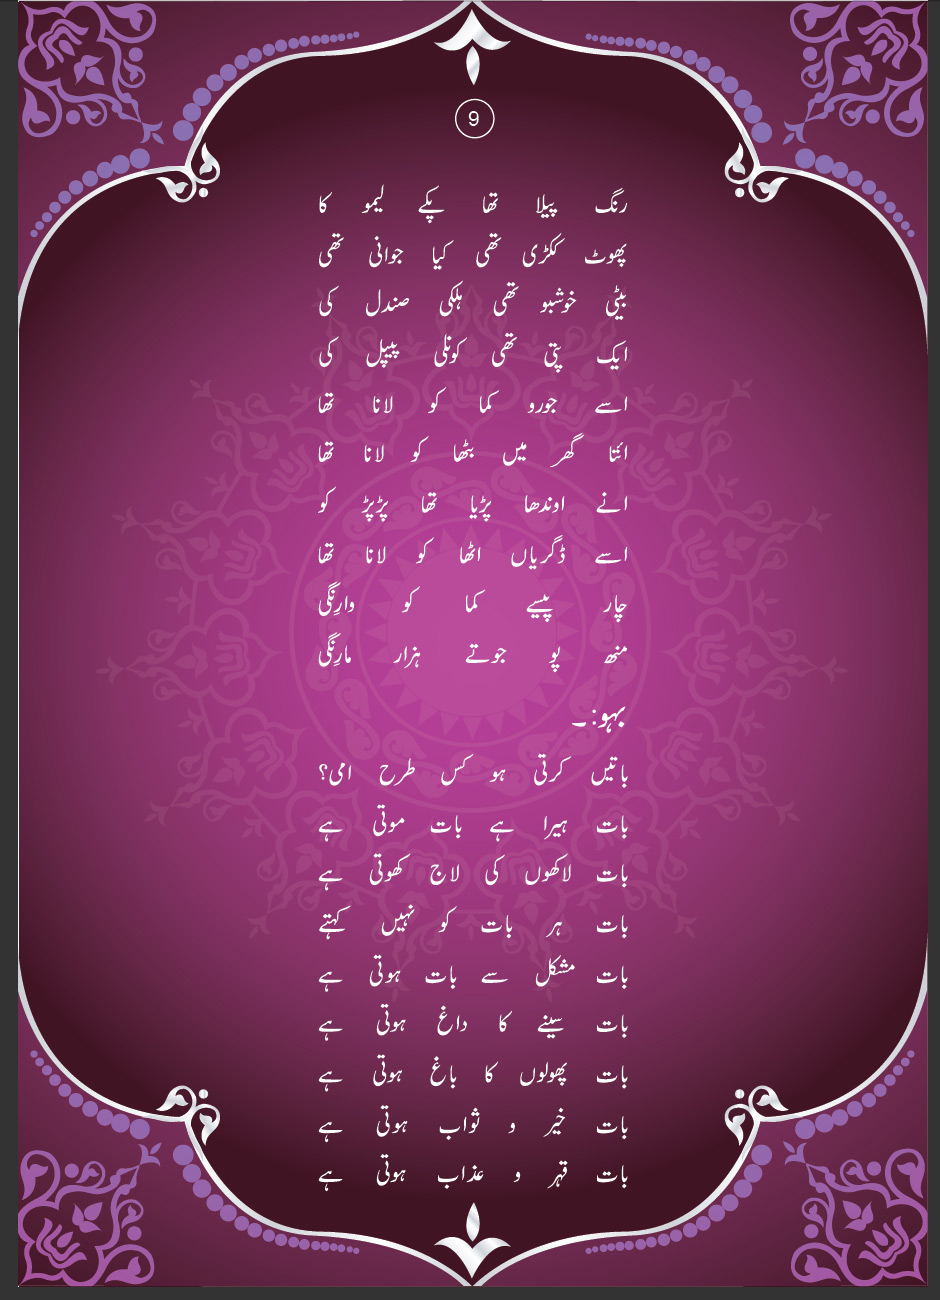 9
رنگ پیلا تھا پکے لیمو کا
پھوٹ ککڑی تھی کیا جوانی تھی
بیٹی خوشبو تھی ہلکی صندل کی
ایک پتی تھی کونلی پیپل کی
اسے جورو کما کو لانا تھا
اتنا گھر میں بٹھا کو لانا تھا
انے اوندھا پڑیا تھا پڑپڑ کو
اسے ڈگریاں اٹھا کو لانا تھا
چار پیسے کما کو وارنگی
منھ پو جوتے ہزار مارنگی
بہو:۔
باتیں کرتی ہو کس طرح امی؟
بات ہیرا ہے بات موتی ہے
بات لاکھوں کی لاج کھوتی ہے
بات ہر بات کو نہیں کہتے
بات مشکل سے بات ہوتی ہے
بات سینے کا داغ ہوتی ہے
بات پھولوں کا باغ ہوتی ہے
بات خیر و ثواب ہوتی ہے
بات قہر و عذاب ہوتی ہے